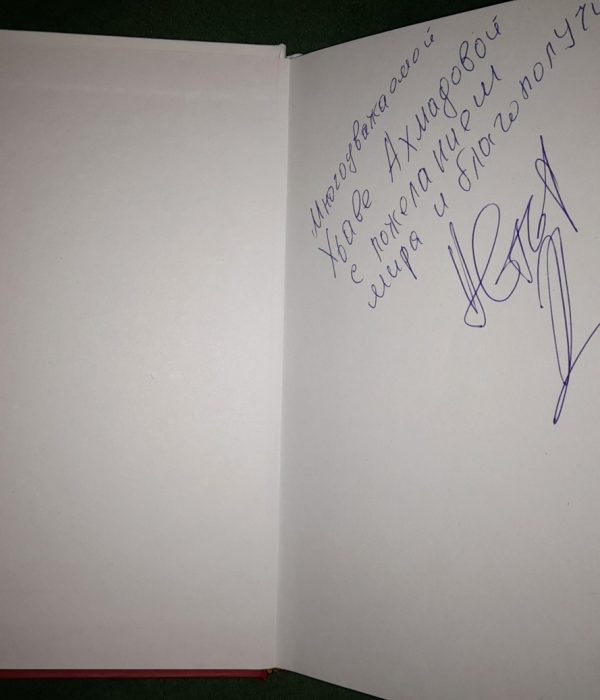 Многоуважаемой
Хьаве Ахмадовой
с пожеланием
мира и благополучи